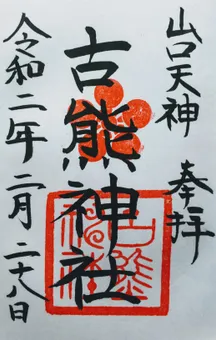 山口天神
奉拝
古熊神社
令和二年二月二十八日
古熊神社